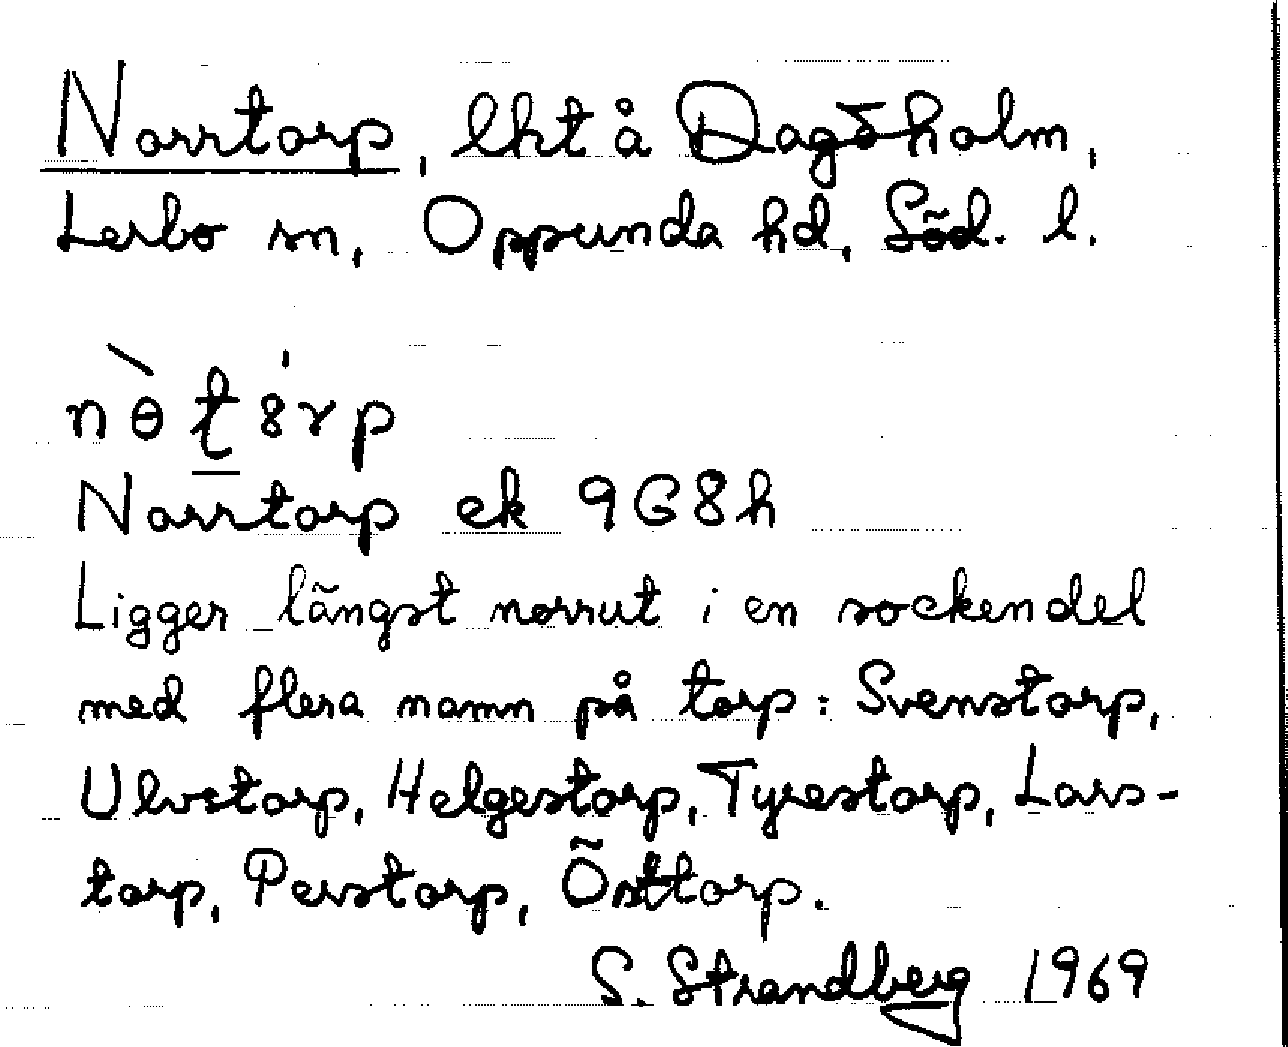 Norrtorp, lht å Dagöholm,
Lerbo sn, Oppunda hd, Söd. l.
nòt̲ȣ́rp
Norrtorp ek 9G8h
Ligger längst norrut i en sockendel
med flera namn på torp: Svenstorp,
Ulvstorp, Helgestorp, Tyrestorp, Lars-
torp, Perstorp, Östtorp.
S. Strandberg 1969